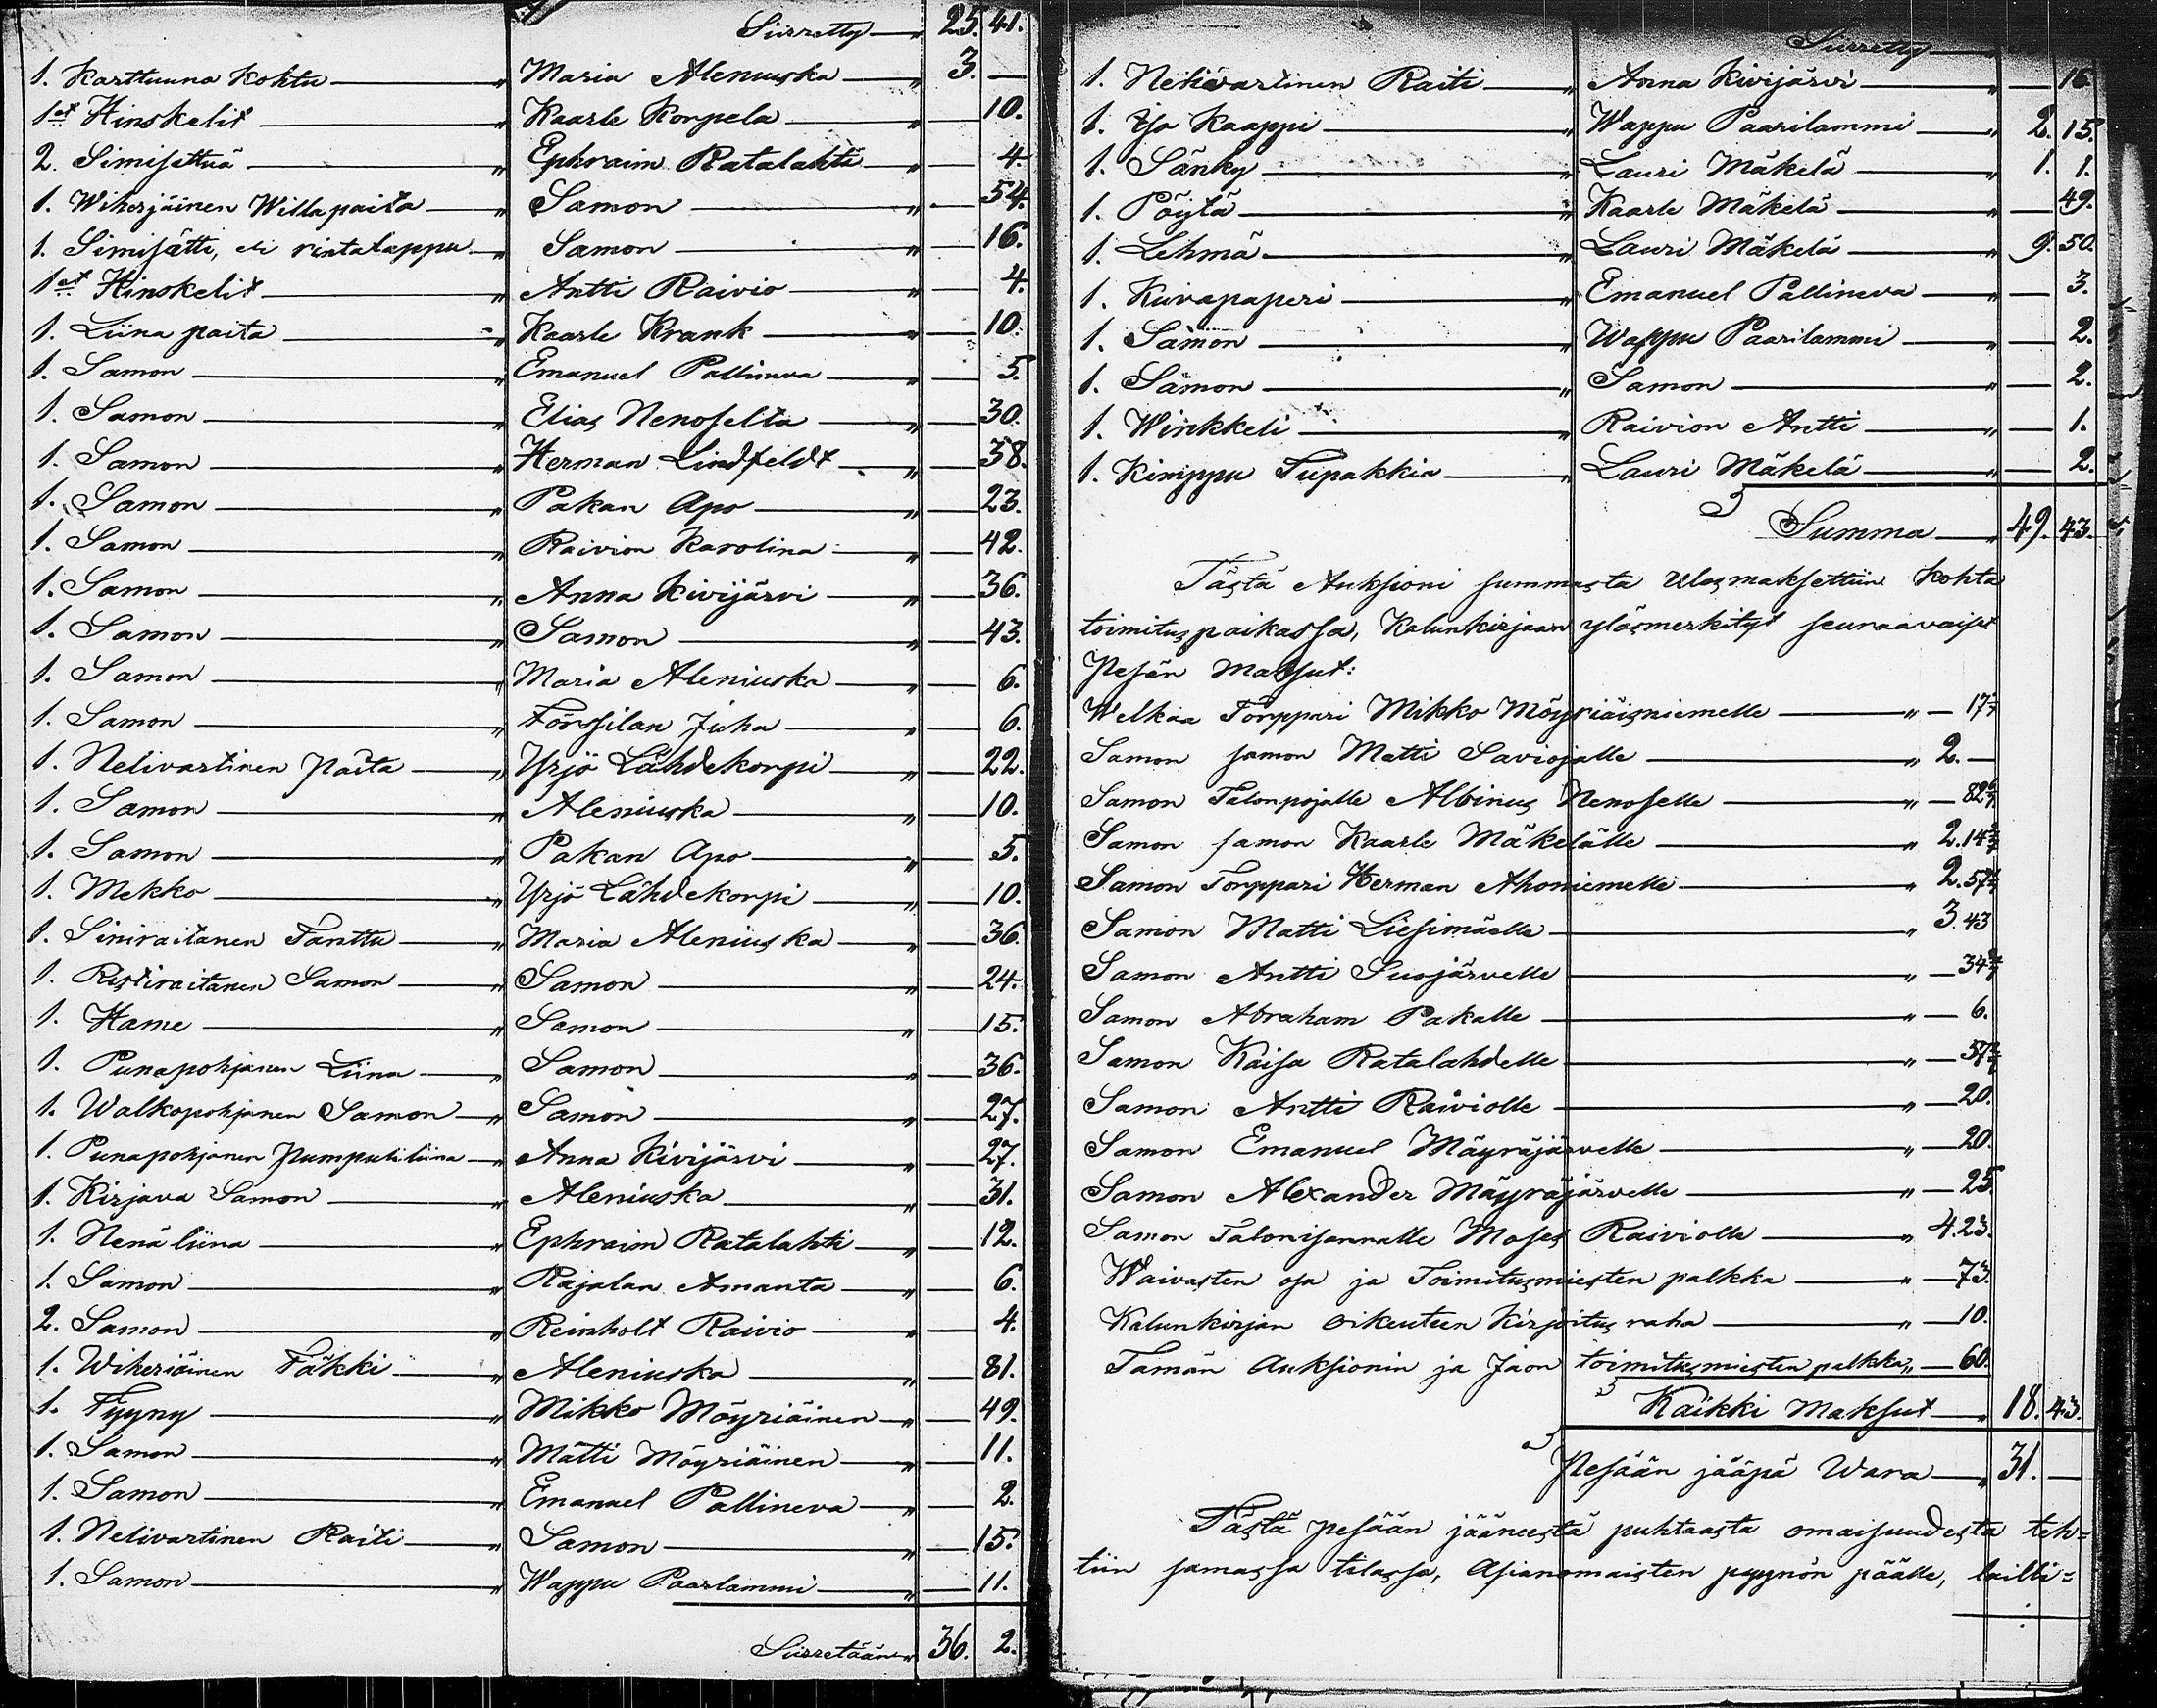 Siirretty — " 25. 41.
1. Karttuuna Kohtu — " Maria Aleniuska — " 3. —
1et Hinskelit — " Kaarle Korpela — " — 10.
2. Simisettiä — " Ephraim Ratalahti — " — 4.
1. Wiherjäinen Willapaita — " Samon — " — 54.
1. Simisätti, eli rintalappu — " Samon — " — 16.
1et Hinskelit — " Antti Raivio — " — 4.
1. Liina paita — " Kaarle Krank — " — 10.
1. Samon — " Emanuel Pallineva — " — 5.
1. Samon — " Elias Nenoselta — " — 30.
1. Samon — " Herman Lindfeldt — " — 38.
1. Samon — " Pakan Apo — " — 23.
1. Samon — " Raivion Karolina — " — 42.
1. Samon — " Anna Kivijärvi — " — 36.
1. Samon — " Samon — " — 43.
1. Samon — " Maria Aleniuska — " — 6.
1. Samon — " Forssilan Juha — " — 6.
1. Nelivartinen Paita — " Yrjö Lähdekorpi — " — 22.
1. Samon — " Aleniuska — " — 10.
1. Samon — " Pakan Apo — " — 5.
1. Mekko — " Yrjö Lähdekorpi — " — 10.
1. Siniraitanen Tanttu — " Maria Aleniuska — " — 36.
1. Ristiraitanen Samon — " Samon — " — 24.
1. Hame — " Samon — " — 15.
1. Punapohjanen Liina — " Samon — " — 36.
1. Walkopohjanen Samon — " Samon — " — 27.
1. Punapohjanen Pumpuliliina — " Anna Kivijärvi — " — 27.
1. Kirjava Samon — " Aleniuska — " — 31.
1. Nenäliina — " Ephraim Ratalahti — " — 12.
1. Samon — " Rajalan Amanta — " — 6.
2. Samon — " Reinholt Raivio — " — 4.
1. Wiheriäinen Täkki — " Aleniuska — " — 81.
1. Tyyny — " Mikko Möyriäinen — " — 49.
1. Samon — " Matti Möyriäinen — " — 11.
1. Samon — " Emanuel Pallineva — " — 2.
1. Nelivartinen Raiti — " Samon — " — 15.
1. Samon — " Wappu Paarlammi — " — 11.
Siirretään " 36. 2.
Siirretty —
1. Nelivartinen Raiti — " Anna Kivijärvi — " — 16.
1. Yö Kaappi — " Wappu Paarilammi — " 2. 15.
1. Sänky — " Lauri Mäkelä — " 1. 1.
1. Pöytä — " Kaarle Mäkelä — " — 49.
1. Lehmä — " Lauri Mäkelä — " 9. 50.
1. Kuvapaperi — " Emanuel Pallineva — " — 3.
1. Samon — " Wappu Paarilammi — " — 2.
1. Samon — " Samon — " — 2.
1. Winkkeli — " Raivion Antti — " — 1.
1. Kimppu Tupakkia — " Lauri Mäkelä — " — 2.
Summa — " 49. 43.
Tästä Auksioni summasta Ulosmaksettiin kohta
toimituspaikassa, Kalunkirjaan ylösmerkityt seuraavaiset
Pesän Maksut:
Welkaa Torppari Mikko Möyriäisniemelle — " — 17 1/7
Samon samon Matti Saviojalle — " 2. —
Samon Talonpojalle Albinus Nenoselle — " — 82 6/7
Samon samon Kaarle Mäkelälle — " 2. 14 2/7
Samon Torppari Herman Ahoniemelle — " 2. 57 1/7
Samon Matti Liesimäelle — " 3. 43
Samon Antti Suojärvelle — " — 34 2/7
Samon Abraham Pakalle — " — 6.
Samon Kaisa Ratalahdelle — " — 57 2/7
Samon Antti Raiviolle — " — 20.
Samon Emanuel Mäyräjärvelle — " — 20.
Samon Alexander Mäyräjärvelle — " — 25.
Samon Talonisannalle Moses Raiviolle — " 4. 23.
Waivasten osa ja Toimitusmiesten palkka — " — 73.
Kalunkirjan oikeuteen kirjoitus raha — " — 10.
Tämän Auksionin ja Jaon toimitusmiesten palkka " — 60.
Kaikki Maksut — " 18. 43.
Pesään jääpä Wara — " 31. —
Tästä pesään jääneestä puhtaasta omaisuudesta teh=
tiin samassa tilassa, Asianomaisten pyynön päälle, lailli=